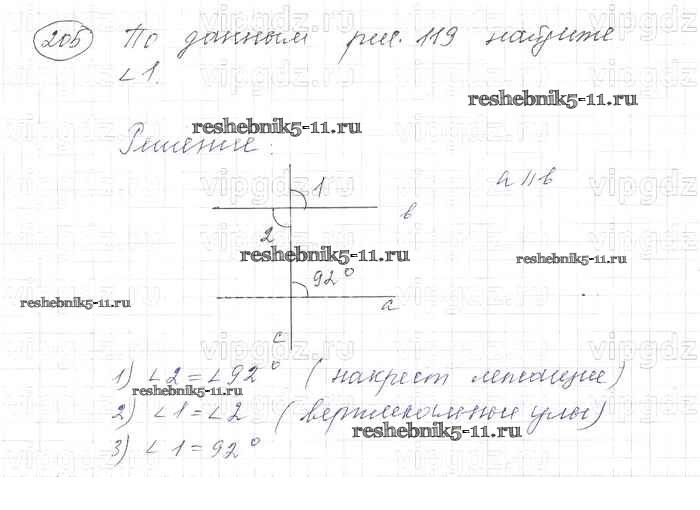 205 По данным рис. 119 найдите
∠1.
reshebnik5-11.ru
reshebnik5-11.ru
Решение:
1
a || в
в
2
reshebnik5-11.ru
reshebnik5-11.ru
92°
reshebnik5-11.ru
a
c
1) ∠2 = ∠92° (накрест лежащие)
reshebnik5-11.ru
2) ∠1 = ∠2 (вертикальные углы)
reshebnik5-11.ru
3) ∠1 = 92°